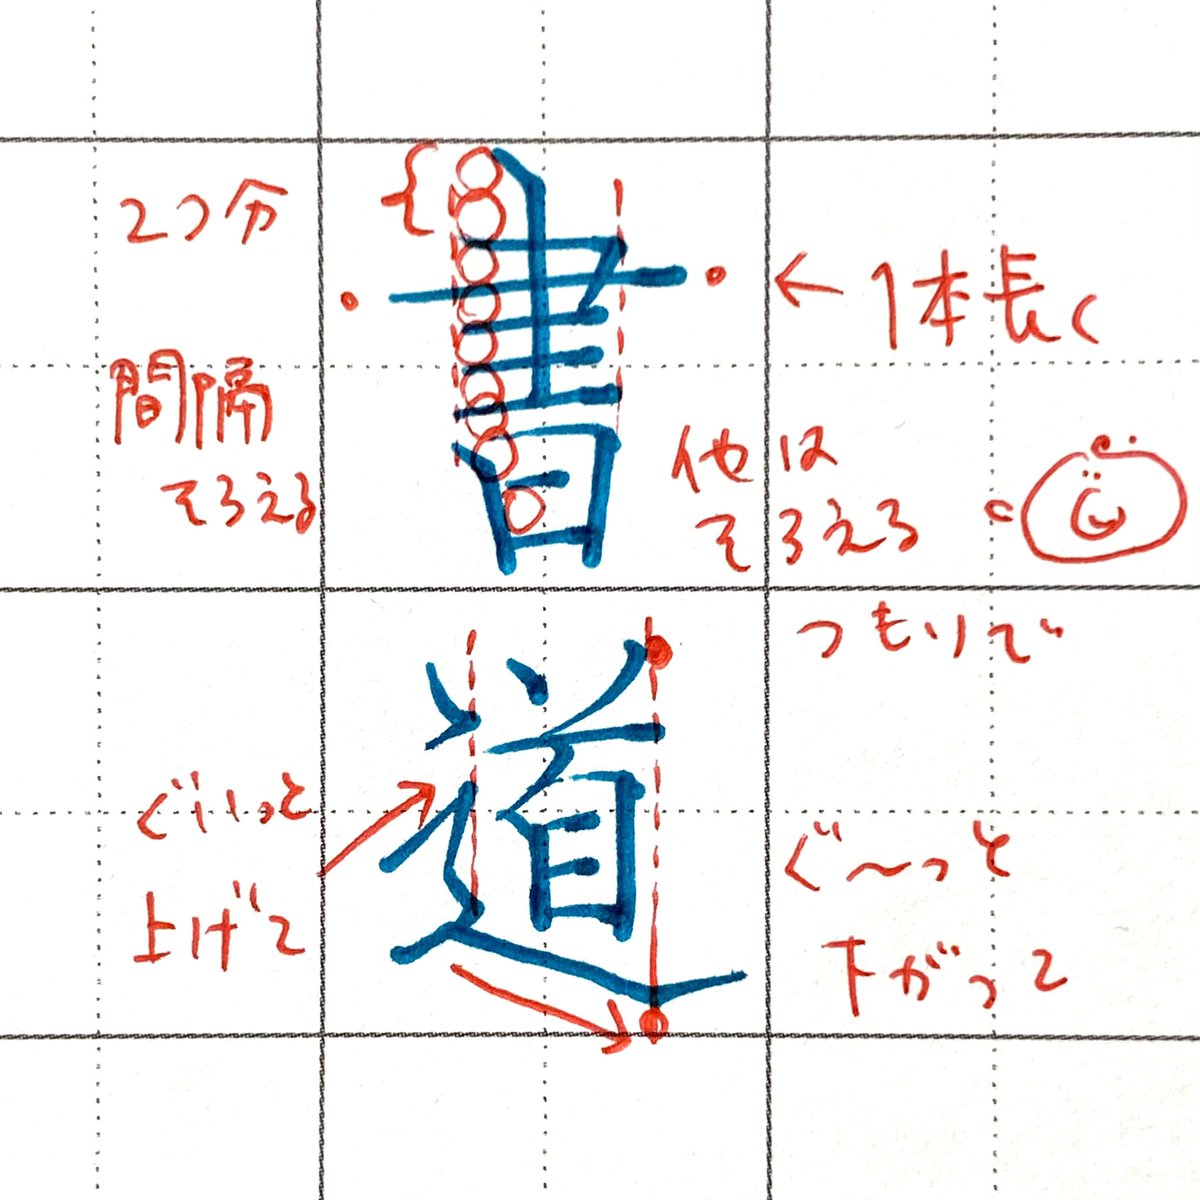 書
道
2つ分
間隔
そろえる
←1本長く
他は
そろえる
つもりで
ぐいっと
上げて
ぐ〜っと
下がって